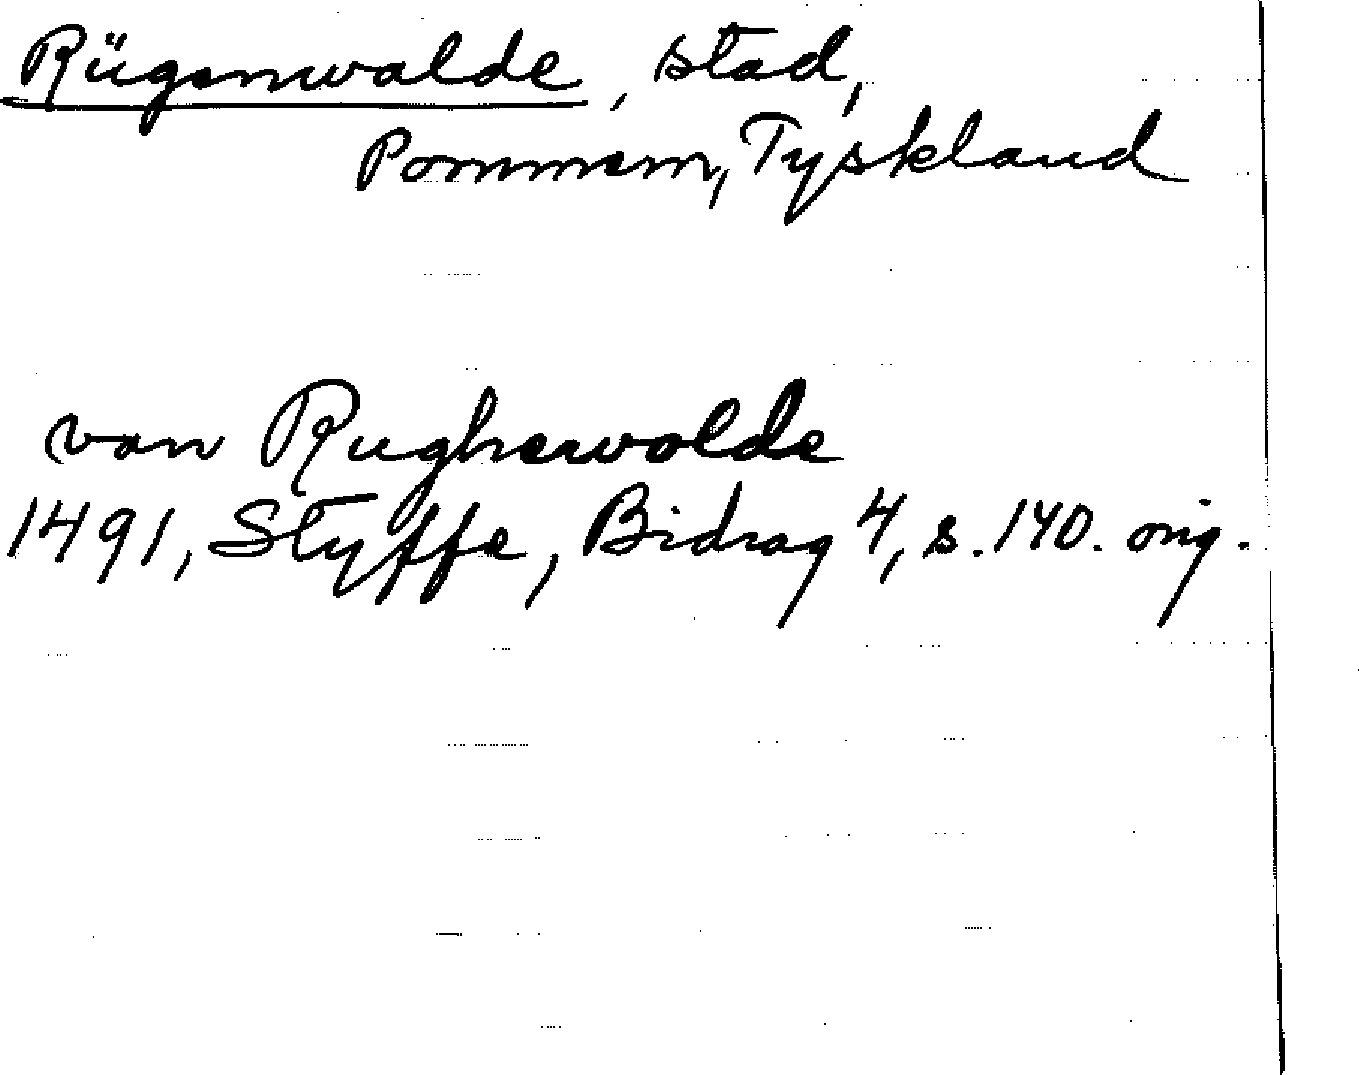 Rügenwalde, stad,
Pommern, Tyskland
van Rughewolde
1491, Styffe, Bidrag 4, s. 140. orig.